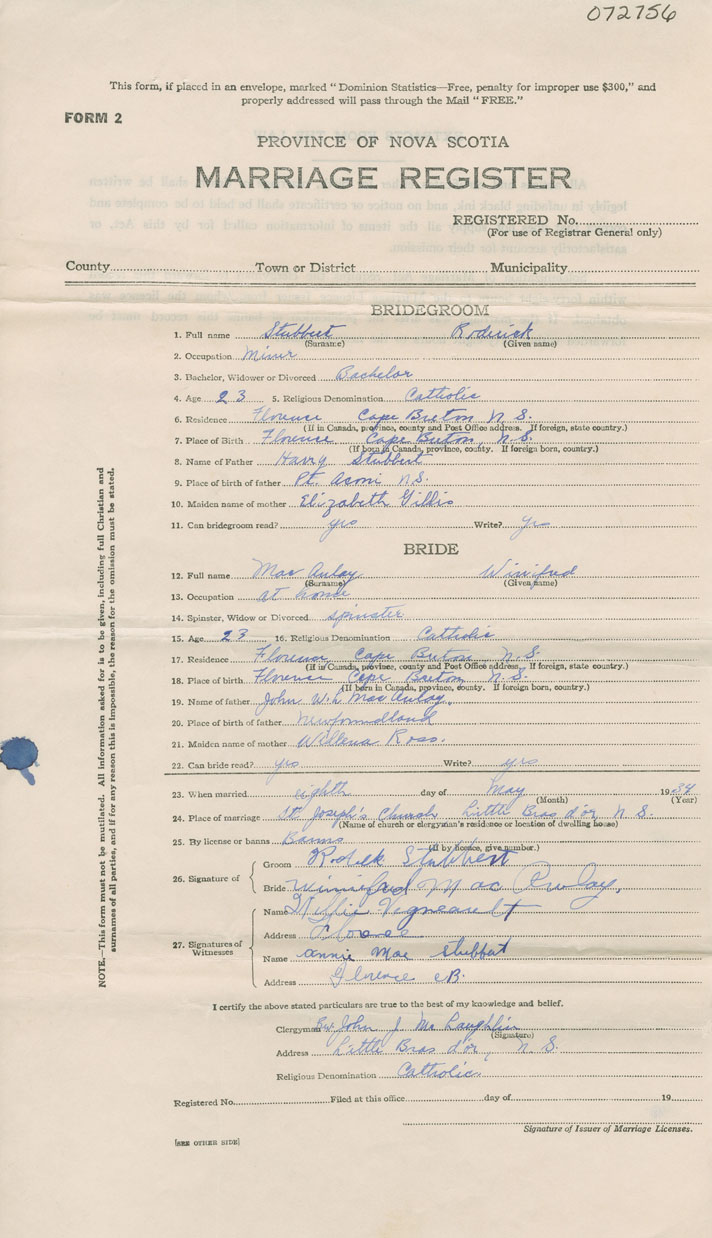 072756
This form, if placed in an envelope, marked "Dominion Statistics—Free, penalty for improper use $300," and
properly addressed will pass through the Mail "FREE."
FORM 2
PROVINCE OF NOVA SCOTIA
MARRIAGE REGISTER
REGISTERED No.
(For use of Registrar General only)
County Town or District Municipality
BRIDEGROOM
1. Full name Stubbert Roderick
(Surname) (Given name)
2. Occupation Miner
3. Bachelor, Widower or Divorced Bachelor
4. Age 23 5. Religious Denomination Catholic
6. Residence Florence Cape Breton N.S.
(If in Canada, province, county and Post Office address. If foreign, state country.)
7. Place of Birth Florence Cape Breton, N.S.
(If born in Canada, province, county. If foreign born, country.)
8. Name of Father Harry Stubbert
9. Place of birth of father Pt. Aconi N.S.
10. Maiden name of mother Elizabeth Gillis
11. Can bridegroom read? yes Write? yes
BRIDE
12. Full name Mac Aulay Winifred
(Surname) (Given name)
13. Occupation at home
14. Spinster, Widow or Divorced spinster
15. Age 23 16. Religious Denomination Catholic
17. Residence Florence Cape Breton N.S.
(If in Canada, province, county and Post Office address. If foreign, state country.)
18. Place of birth Florence Cape Breton N.S.
(If born in Canada, province, county. If foreign born, country.)
19. Name of father John W. Mac Aulay.
20. Place of birth of father Newfoundland
21. Maiden name of mother Willena Ross.
22. Can bride read? yes Write? yes
23. When married eighth day of May 1934
(Month) (Year)
24. Place of marriage St Joseph's Church Little Bras d'or N.S.
(Name of church or clergyman's residence or location of dwelling house)
25. By license or banns Banns
(If by licence, give number.)
26. Signature of
Groom Stubbert
Bride Winnifred Mac Aulay,
27. Signatures of Witnesses
Name Vigneault
Address Florence
Name Annie Mae Stubbert
Address Florence CB.
I certify the above stated particulars are true to the best of my knowledge and belief.
Clergyman Rev John J. McLaughlin
(Signature)
Address Little Bras d'or, N.S.
Religious Denomination Catholic
Registered No. Filed at this office day of 19
Signature of Issuer of Marriage Licenses.
[SEE OTHER SIDE]
NOTE.—This form must not be mutilated. All information asked for is to be given, including full Christian and
surnames of all parties, and if for any reason this is impossible, the reason for the omission must be stated.